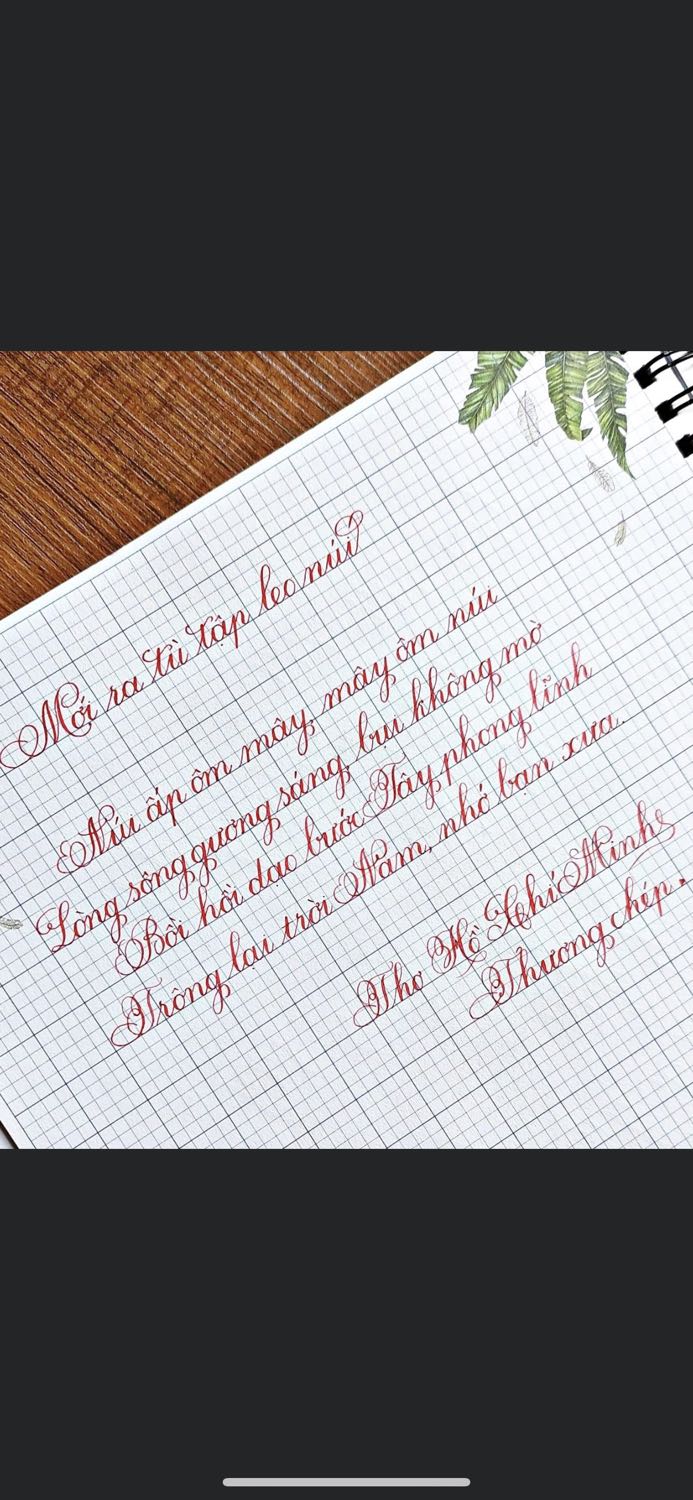 Mới ra tù tập leo núi
Núi ấp ôm mây, mây ôm núi
Lòng sông gương sáng, bụi không mờ
Bồi hồi dạo bước Tây phong lĩnh
Trông lại trời Nam, nhớ bạn xưa.
Thơ Hồ Chí Minh
Thương chép.